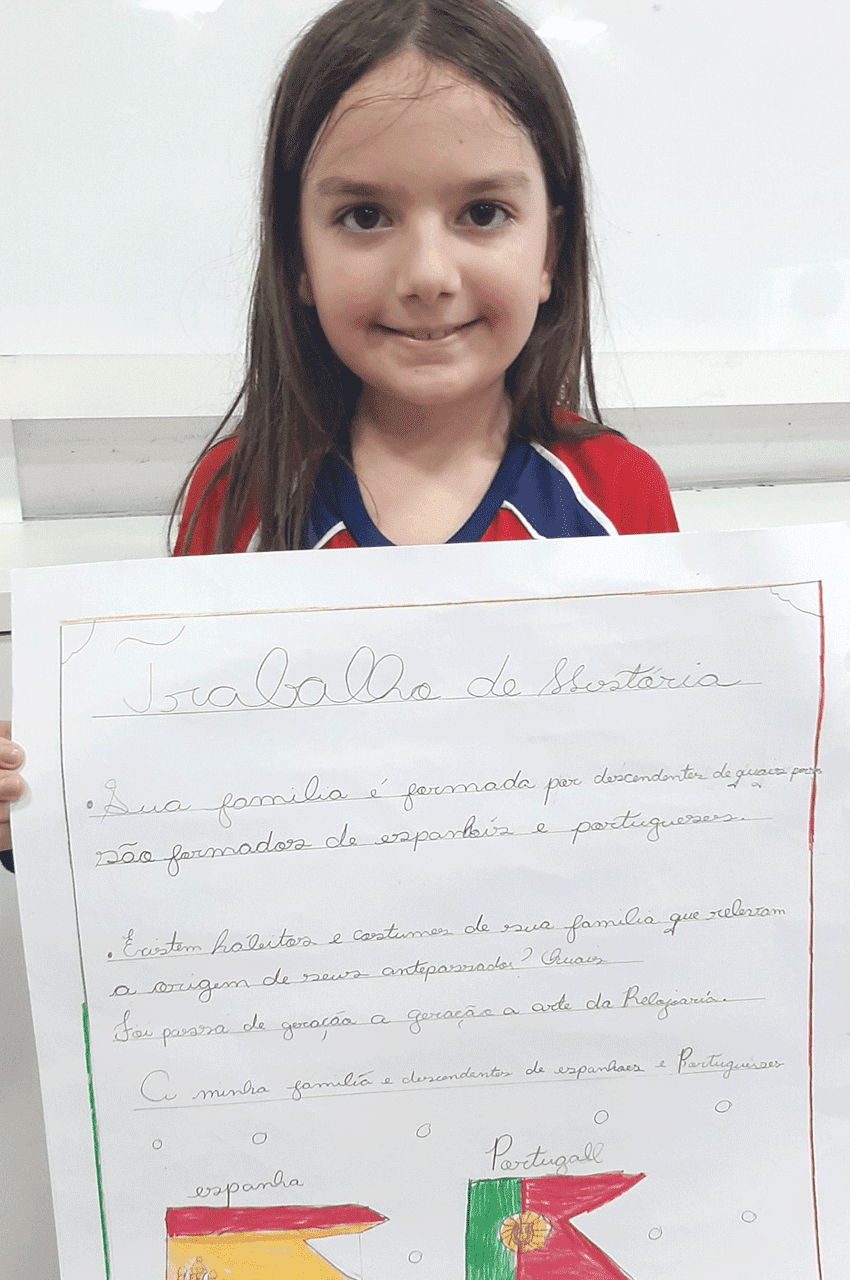 Trabalho de History
Sua familia é formada por descendentes de quais
são formados de espanhóis e portugueses.
Existem hábitos e costumes de sua familia que relevam
a origem de seus antepassados? Quais
Foi passa de geração a geração a arte da Relojoaria.
A minha familia e descendentes de espanhaes e Portugueses
espanha
Portugall